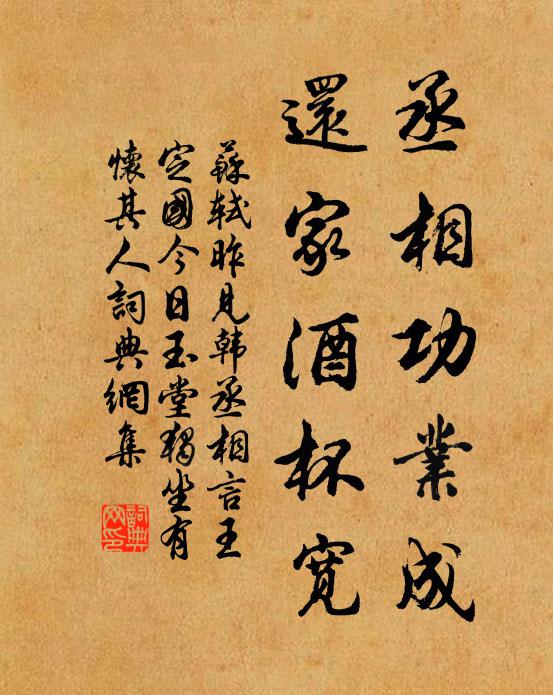 丞相功業成
還家酒杯寬
蘇軾昨見韓丞相言王
定國今日玉堂獨坐有
懷其人詞典網集
詞典
网印